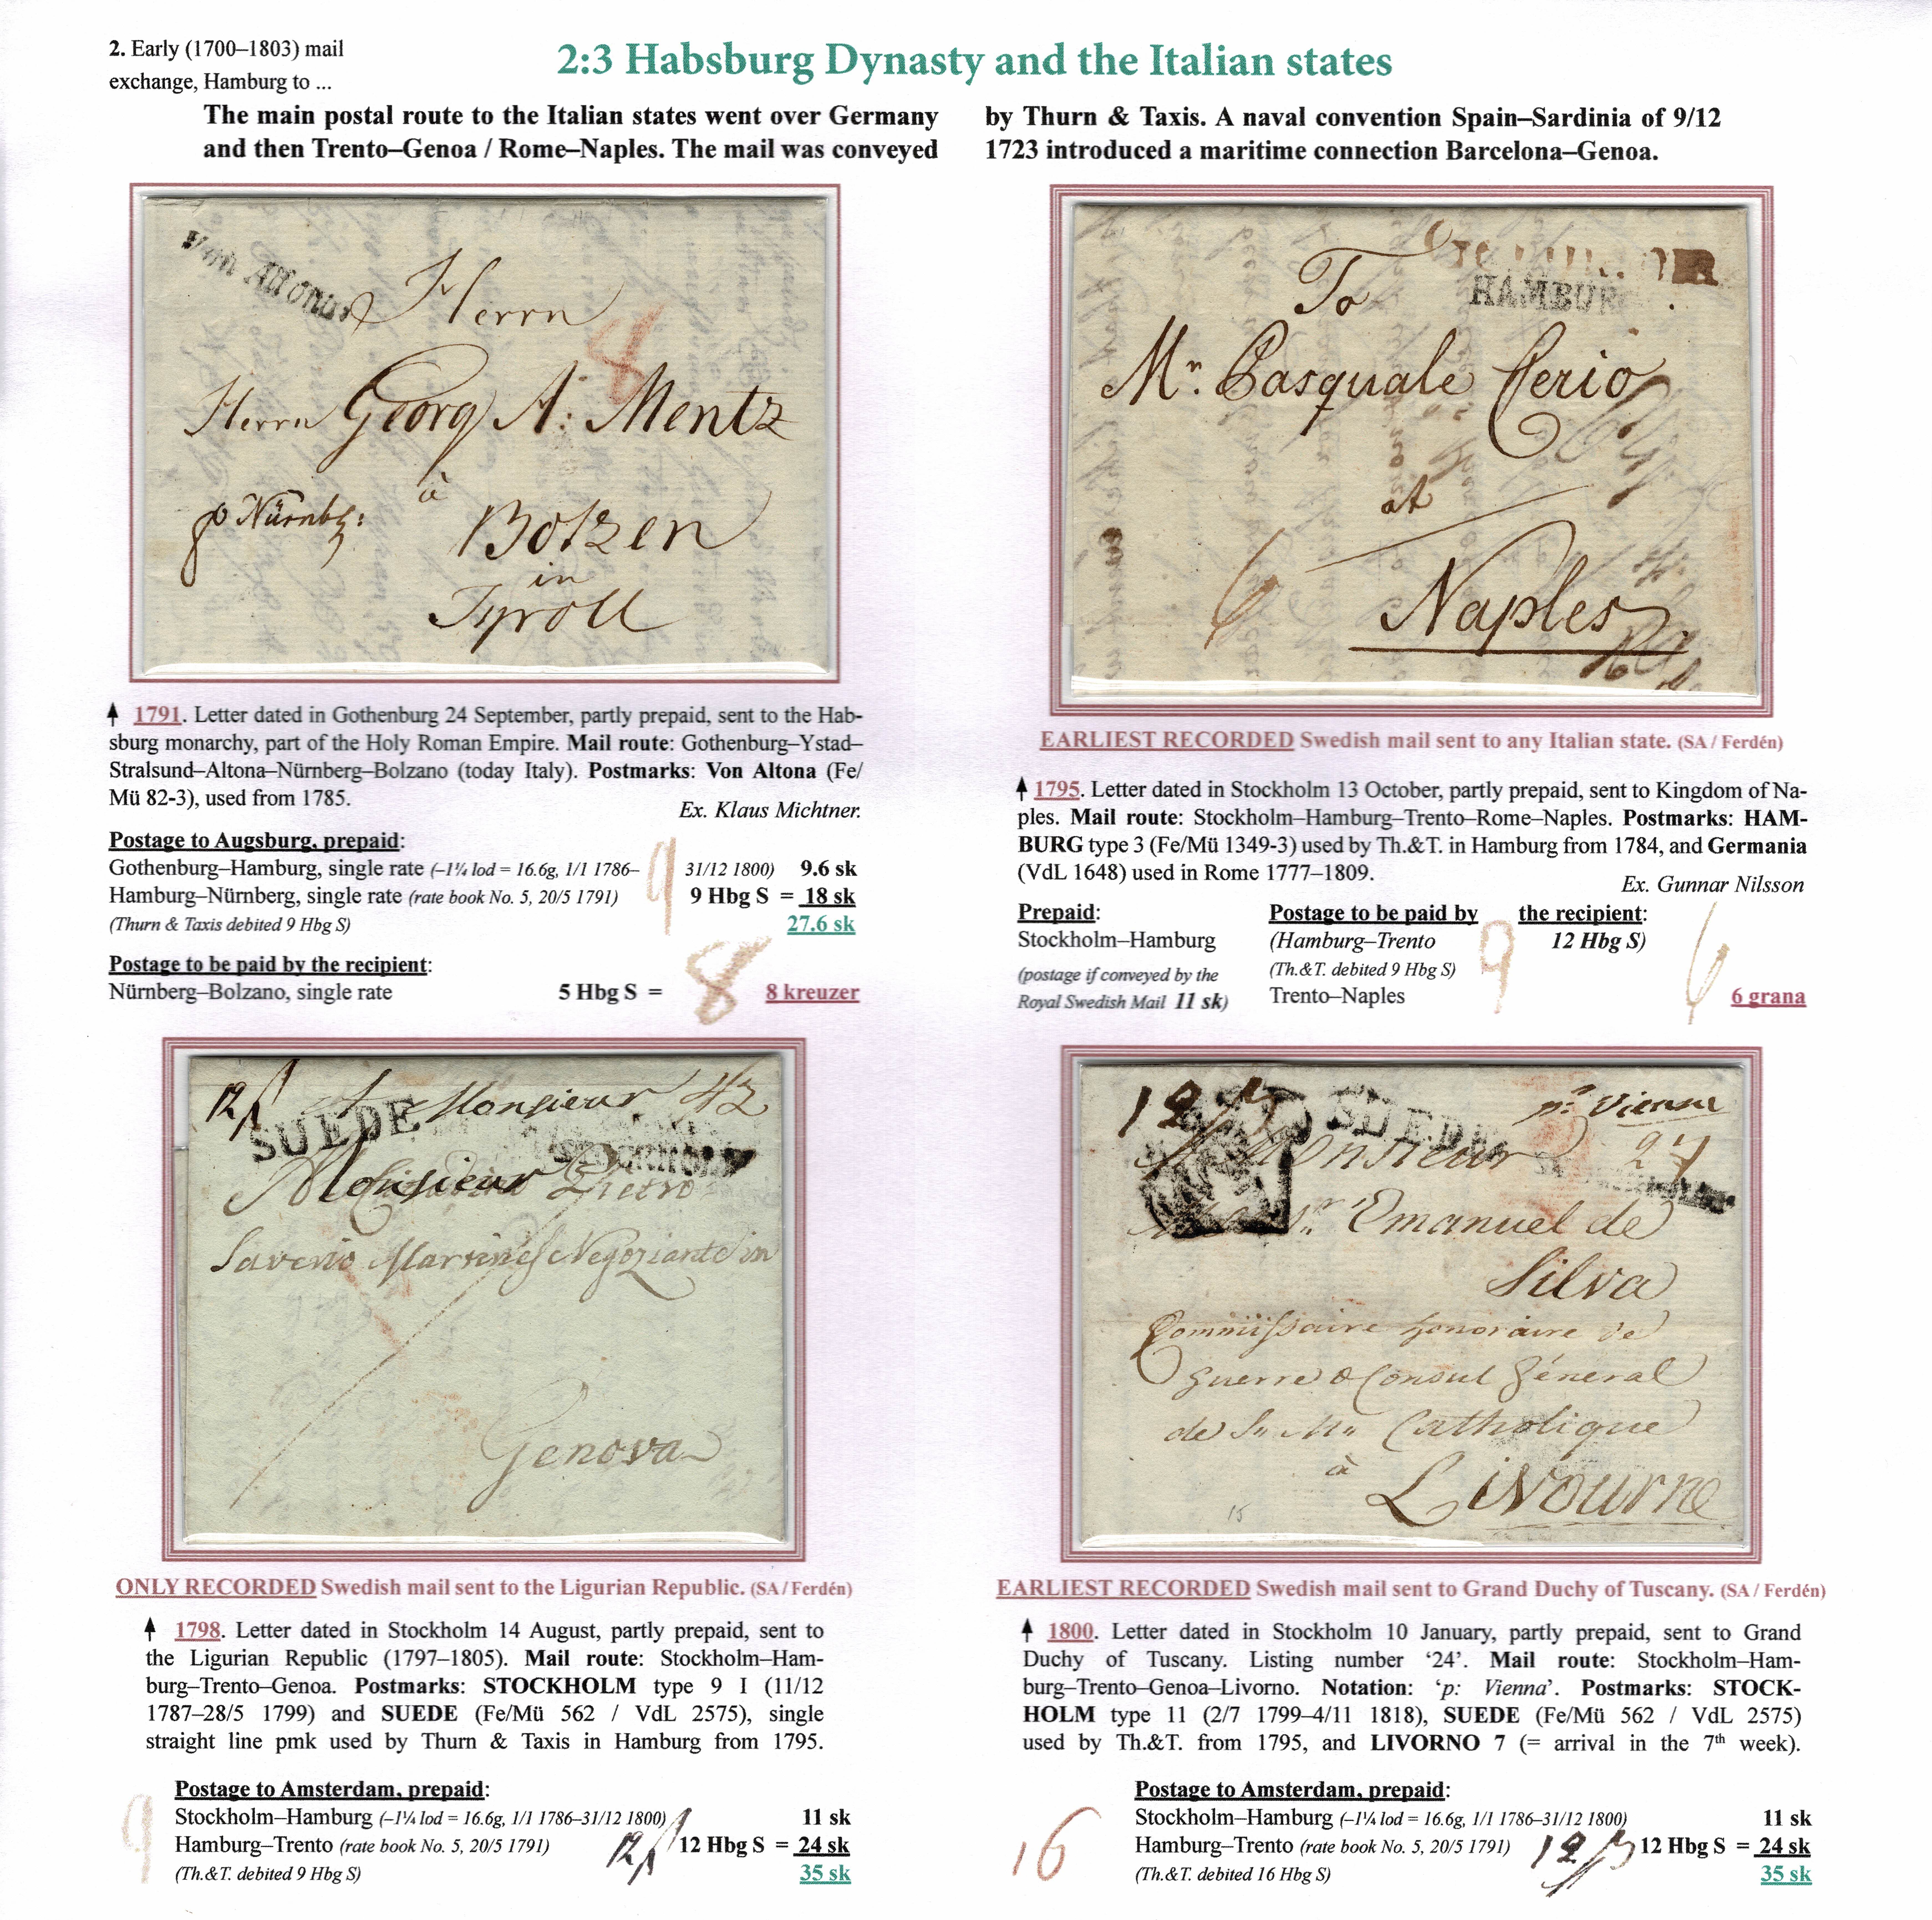 2. Early (1700–1803) mail
exchange, Hamburg to ...
2:3 Habsburg Dynasty and the Italian states
The main postal route to the Italian states went over Germany
and then Trento–Genoa / Rome–Naples. The mail was conveyed
by Thurn & Taxis. A naval convention Spain–Sardinia of 9/12
1723 introduced a maritime connection Barcelona–Genoa.
Von Altona
Herrn
8
Herrn Georg A: Mentz
à
p Nürnbg:
Botzen
in
Tyroll
1791. Letter dated in Gothenburg 24 September, partly prepaid, sent to the Hab-
sburg monarchy, part of the Holy Roman Empire. Mail route: Gothenburg–Ystad–
Stralsund–Altona–Nürnberg–Bolzano (today Italy). Postmarks: Von Altona (Fe/
Mü 82-3), used from 1785.
Ex. Klaus Michtner.
Postage to Augsburg, prepaid:
Gothenburg–Hamburg, single rate (–1¼ lod = 16.6g, 1/1 1786–31/12 1800) 9.6 sk
Hamburg–Nürnberg, single rate (rate book No. 5, 20/5 1791) 9 9 Hbg S = 18 sk
(Thurn & Taxis debited 9 Hbg S) 27.6 sk
Postage to be paid by the recipient:
Nürnberg–Bolzano, single rate 5 Hbg S = 8 8 kreuzer
HAMBUR
To
Mr. Pasquale Cerio
at
6
Naples
EARLIEST RECORDED Swedish mail sent to any Italian state. (SA / Ferdén)
1795. Letter dated in Stockholm 13 October, partly prepaid, sent to Kingdom of Na-
ples. Mail route: Stockholm–Hamburg–Trento–Rome–Naples. Postmarks: HAM-
BURG type 3 (Fe/Mü 1349-3) used by Th.&T. in Hamburg from 1784, and Germania
(VdL 1648) used in Rome 1777–1809.
Ex. Gunnar Nilsson
Prepaid:
Stockholm–Hamburg
(postage if conveyed by the
Royal Swedish Mail 11 sk)
Postage to be paid by the recipient:
(Hamburg–Trento 12 Hbg S)
(Th.&T. debited 9 Hbg S) 9
Trento–Naples 6 6 grana
12 A Monsieur 42
SUEDE STOCKHOLM
Monsieur Pietro
Saverio Martines Negoziante in
Genova
ONLY RECORDED Swedish mail sent to the Ligurian Republic. (SA / Ferdén)
1798. Letter dated in Stockholm 14 August, partly prepaid, sent to
the Ligurian Republic (1797–1805). Mail route: Stockholm–Ham-
burg–Trento–Genoa. Postmarks: STOCKHOLM type 9 I (11/12
1787–28/5 1799) and SUEDE (Fe/Mü 562 / VdL 2575), single
straight line pmk used by Thurn & Taxis in Hamburg from 1795.
9
Postage to Amsterdam, prepaid:
Stockholm–Hamburg (–1¼ lod = 16.6g, 1/1 1786–31/12 1800) 11 sk
Hamburg–Trento (rate book No. 5, 20/5 1791) 12 12 Hbg S = 24 sk
(Th.&T. debited 9 Hbg S) 35 sk
12 SUEDE p: Vienna
Monsieur 24
Emanuel de
Silva
Commissaire honoraire de
guerre & Consul Général
de Catholique
à
Livourne
15
EARLIEST RECORDED Swedish mail sent to Grand Duchy of Tuscany. (SA / Ferdén)
1800. Letter dated in Stockholm 10 January, partly prepaid, sent to Grand
Duchy of Tuscany. Listing number ‘24’. Mail route: Stockholm–Ham-
burg–Trento–Genoa–Livorno. Notation: ‘p: Vienna’. Postmarks: STOCK-
HOLM type 11 (2/7 1799–4/11 1818), SUEDE (Fe/Mü 562 / VdL 2575)
used by Th.&T. from 1795, and LIVORNO 7 (= arrival in the 7th week).
16
Postage to Amsterdam, prepaid:
Stockholm–Hamburg (–1¼ lod = 16.6g, 1/1 1786–31/12 1800) 11 sk
Hamburg–Trento (rate book No. 5, 20/5 1791) 12 12 Hbg S = 24 sk
(Th.&T. debited 16 Hbg S) 35 sk